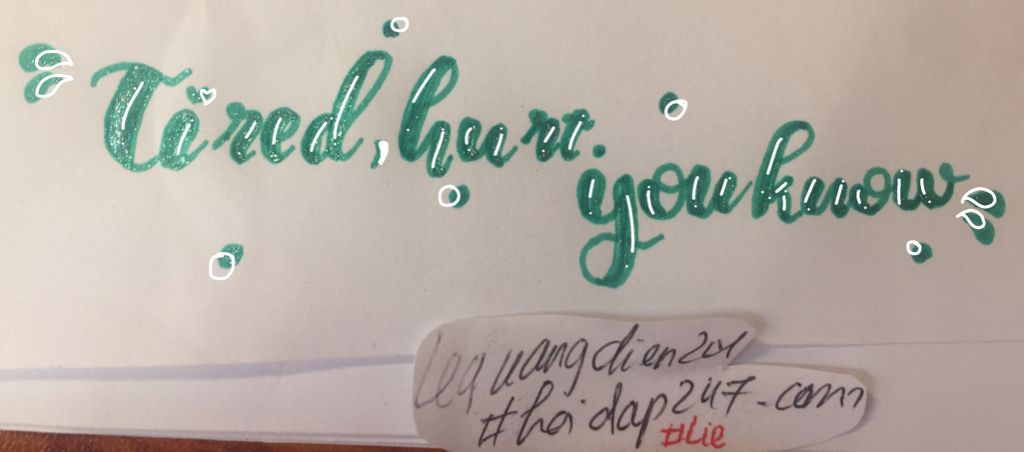 “Tired, hurt.
you know”
lequangdien201
#hoidap247.com
#Lie